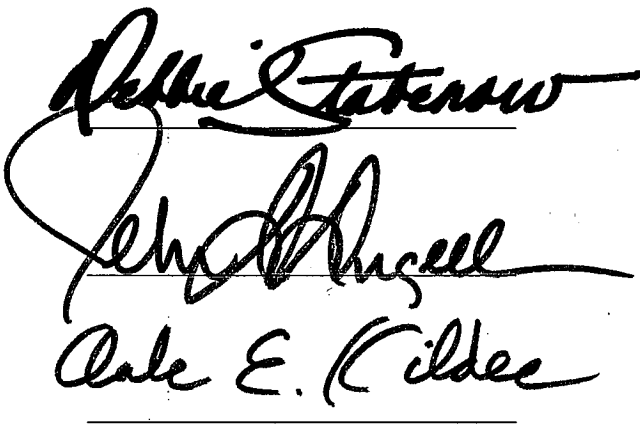 Debbie Stabenow
John D. Dingell
Dale E. Kildee